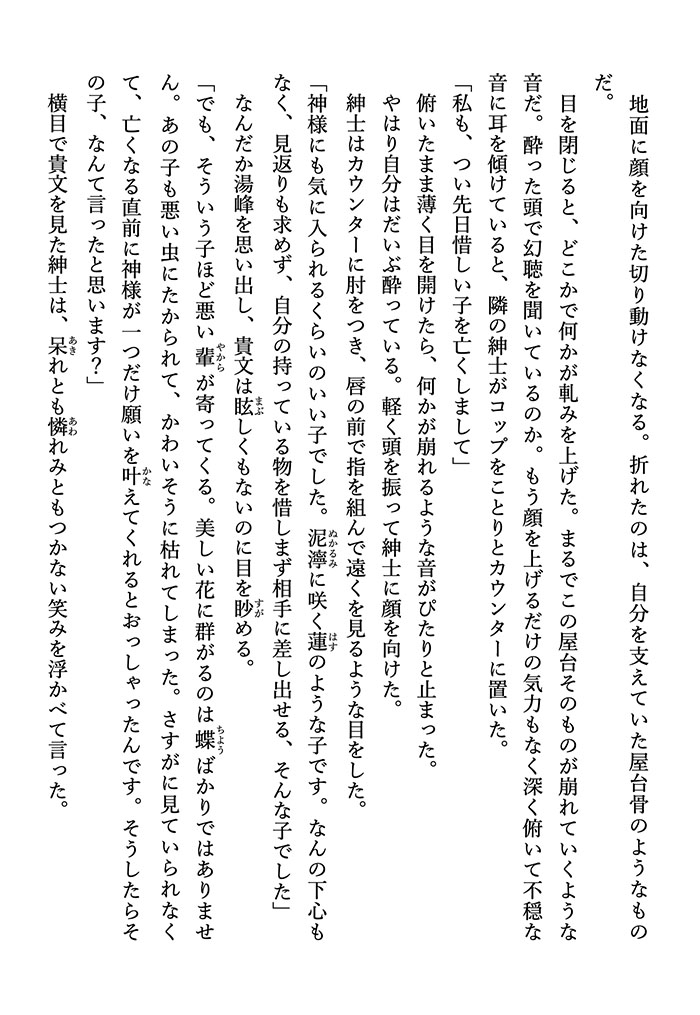 地面に顔を向けた切り動けなくなる。折れたのは、自分を支えていた屋台骨のようなもの
だ。
　目を閉じると、どこかで何かが軋みを上げた。まるでこの屋台そのものが崩れていくような
音だ。酔った頭で幻聴を聞いているのか。もう顔を上げるだけの気力もなく深く俯いて不穏な
音に耳を傾けていると、隣の紳士がコップをことりとカウンターに置いた。
「私も、つい先日惜しい子を亡くしまして」
　俯いたまま薄く目を開けたら、何かが崩れるような音がぴたりと止まった。
　やはり自分はだいぶ酔っている。軽く頭を振って紳士に顔を向けた。
　紳士はカウンターに肘をつき、唇の前で指を組んで遠くを見るような目をした。
「神様にも気に入られるくらいのいい子でした。泥濘に咲く蓮のような子です。なんの下心も
なく、見返りも求めず、自分の持っている物を惜しまず相手に差し出せる、そんな子でした」
　なんだか湯峰を思い出し、貴文は眩しくもないのに目を眇める。
「でも、そういう子ほど悪い輩が寄ってくる。美しい花に群がるのは蝶ばかりではありませ
ん。あの子も悪い虫にたかられて、かわいそうに枯れてしまった。さすがに見ていられなく
て、亡くなる直前に神様が一つだけ願いを叶えてくれるとおっしゃったんです。そうしたらそ
の子、なんて言ったと思います？」
　横目で貴文を見た紳士は、呆れとも憐れみともつかない笑みを浮かべて言った。